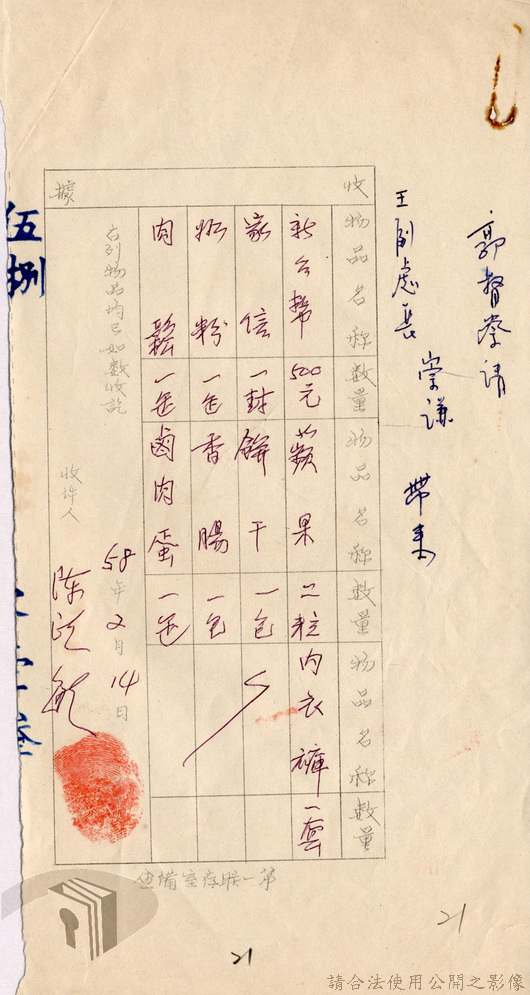 郭督察請
王副處長 崇謙 帶來
收 據
物品名称 数量 物品名称 数量 物品名称 数量
新台幣 500元 蘋果 二粒 內衣褲 一套
家信 一封 餅干 一包
奶粉 一缶 香腸 一包
肉鬆 一缶 鹵肉蛋 一缶
右列物品均已如数收訖
收件人
58年2月14日
第一联存室備查
伍捌
21
21
請合法使用公開之影像